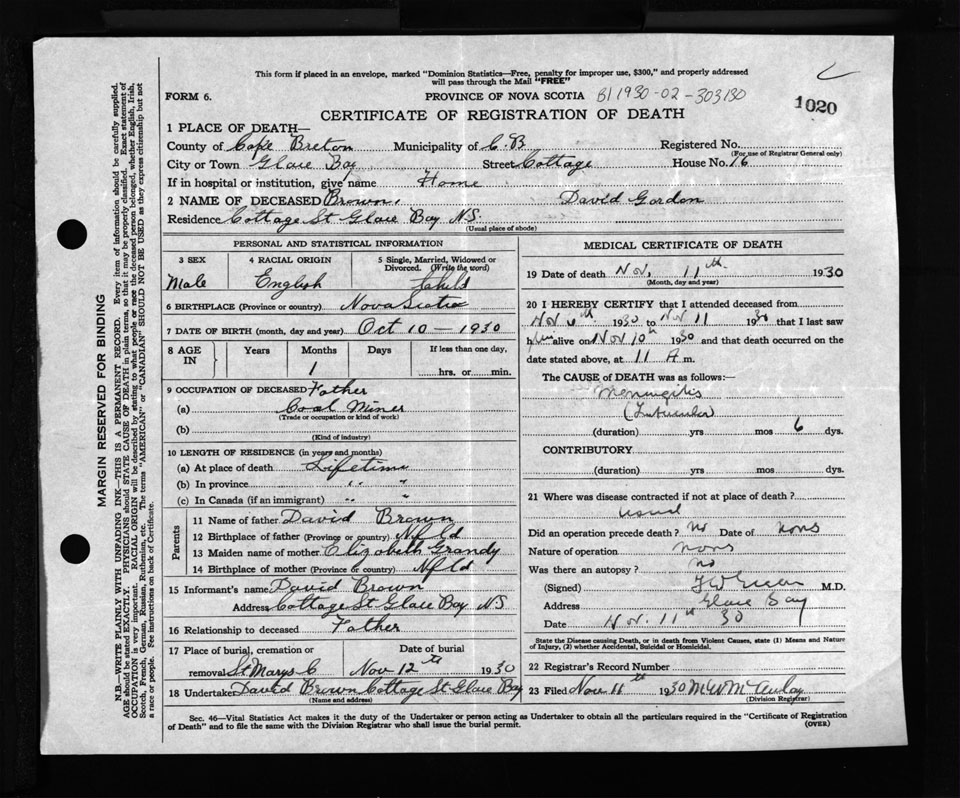 This form if placed in an envelope, marked "Dominion Statistics—Free, penalty for improper use, $300," and properly addressed
will pass through the Mail "FREE"
FORM 6. PROVINCE OF NOVA SCOTIA B1 1930-02-303130
1020
CERTIFICATE OF REGISTRATION OF DEATH
1 PLACE OF DEATH—
County of Cape Breton Municipality of C.B Registered No.
(For use of Registrar General only)
City or Town Glace Bay Street Cottage House No. 16
If in hospital or institution, give name Home
2 NAME OF DECEASED Brown, David Gordon
Residence Cottage St Glace Bay N.S.
(Usual place of abode)
PERSONAL AND STATISTICAL INFORMATION
3 SEX 4 RACIAL ORIGIN 5 Single, Married, Widowed or
Divorced. (Write the word)
Male English Child
6 BIRTHPLACE (Province or country) Nova Scotia
7 DATE OF BIRTH (month, day and year) Oct 10 - 1930
8 AGE IN Years Months Days If less than one day,
1 hrs. or min.
9 OCCUPATION OF DECEASED Father
(a) Coal Miner
(Trade or occupation or kind of work)
(b)
(Kind of industry)
10 LENGTH OF RESIDENCE (in years and months)
(a) At place of death Lifetime
(b) In province " "
(c) In Canada (if an immigrant) " "
Parents
11 Name of father David Brown
12 Birthplace of father (Province or country) Nfld
13 Maiden name of mother Elizabeth Grandy
14 Birthplace of mother (Province or country) Nfld
15 Informant's name David Brown
Address Cottage St Glace Bay NS
16 Relationship to deceased Father
17 Place of burial, cremation or Date of burial
removal St Marys C Nov 12th 1930
18 Undertaker David Brown Cottage St Glace Bay
(Name and address)
MEDICAL CERTIFICATE OF DEATH
19 Date of death Nov, 11th 1930
(Month, day and year)
20 I HEREBY CERTIFY that I attended deceased from
Nov 6th 1930 to Nov 11 1930 that I last saw
him alive on Nov 10th 1930 and that death occurred on the
date stated above, at 11 A m.
The CAUSE of DEATH was as follows:—
Meningitis
(duration) yrs mos 6 dys.
CONTRIBUTORY
(duration) yrs mos dys.
21 Where was disease contracted if not at place of death?
usual
Did an operation precede death? no Date of none
Nature of operation none
Was there an autopsy? no
(Signed) M.D.
Address Glace Bay
Date Nov. 11th 30
State the Disease causing Death, or in death from Violent Causes, state (1) Means and Nature
of Injury, (2) whether Accidental, Suicidal or Homicidal.
22 Registrar's Record Number
23 Filed Nov 11th 1930 M W McAulay
(Division Registrar)
Sec. 46—Vital Statistics Act makes it the duty of the Undertaker or person acting as Undertaker to obtain all the particulars required in the "Certificate of Registration
of Death" and to file the same with the Division Registrar who shall issue the burial permit. (OVER)
MARGIN RESERVED FOR BINDING
N.B.—WRITE PLAINLY WITH UNFADING INK—THIS IS A PERMANENT RECORD. Every item of information should be carefully supplied.
AGE should be stated EXACTLY. PHYSICIANS should STATE CAUSE OF DEATH in plain terms, so that it may be properly classified. Exact statement of
OCCUPATION is very important. RACIAL ORIGIN will be described by stating to what people or race the deceased person belonged, whether English, Irish,
Scotch, French, German, Russian, Ruthenian, etc. The terms "AMERICAN" or "CANADIAN" SHOULD NOT BE USED as they express citizenship but not
a race or people. See instructions on back of Certificate.